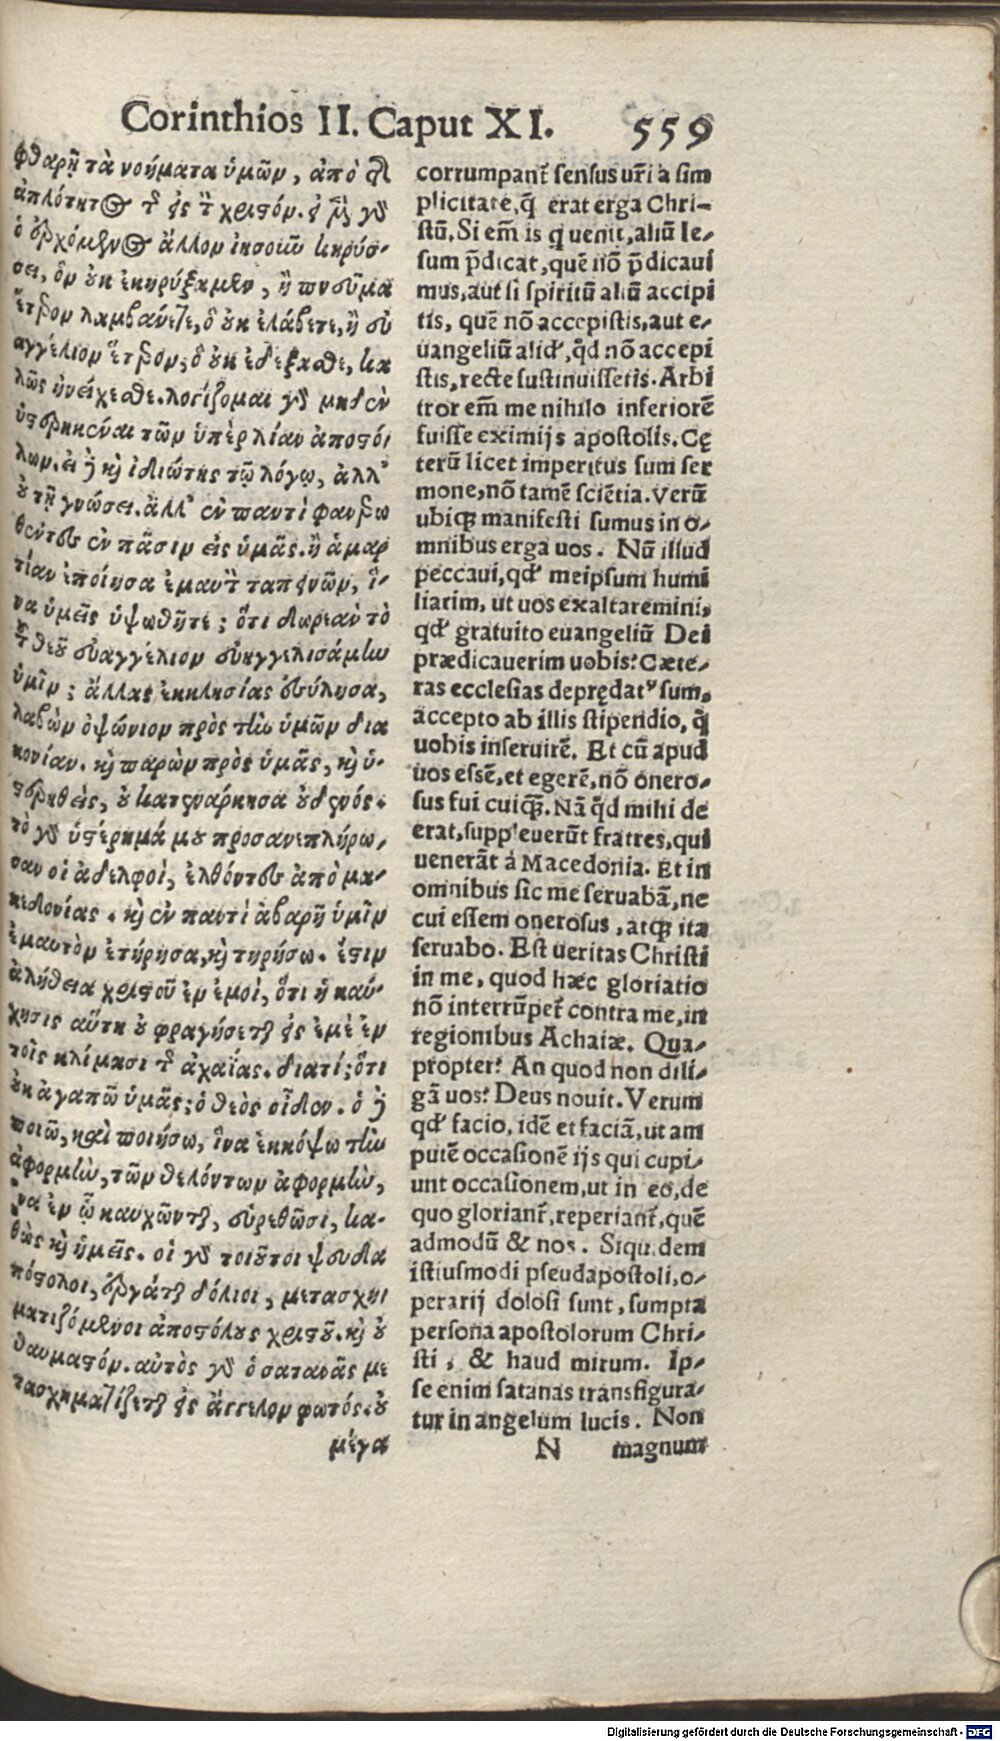 Corinthios II. Caput XI. 559
φθαρῇ τὰ νοήματα ὑμῶν, ἀπὸ τῆς
ἁπλότητος τῆς εἰς τὸν χριστόν. εἰ μὲν γὰρ
ὁ ἐρχόμενος ἄλλον ἰησοῦν κηρύσ-
σει, ὃν οὐκ ἐκηρύξαμεν, ἢ πνεῦμα
ἕτερον λαμβάνετε, ὃ οὐκ ἐλάβετε, ἢ εὐ
αγγέλιον ἕτερον, ὃ οὐκ ἐδέξασθε, κα
λῶς ἠνείχεσθε. λογίζομαι γὰρ μηδὲν
ὑστερηκέναι τῶν ὑπὲρ λίαν ἀποστό
λων. εἰ δὲ καὶ ἰδιώτης τῷ λόγῳ, ἀλλ'
οὐ τῇ γνώσει. ἀλλ' ἐν παντὶ φανερω
θέντες ἐν πᾶσιν εἰς ὑμᾶς. ἢ ἁμαρ
τίαν ἐποίησα ἐμαυτὸν ταπεινῶν, ἵ-
να ὑμεῖς ὑψωθῆτε; ὅτι δωρεὰν τὸ
τοῦ θεοῦ εὐαγγέλιον εὐηγγελισάμην
ὑμῖν; ἄλλας ἐκκλησίας ἐσύλησα,
λαβὼν ὀψώνιον πρὸς τὴν ὑμῶν δια
κονίαν. καὶ παρὼν πρὸς ὑμᾶς, καὶ ὑ-
στερηθεὶς, οὐ κατενάρκησα οὐδενός.
τὸ γὰρ ὑστέρημά μου προσανεπλήρω-
σαν οἱ ἀδελφοὶ, ἐλθόντες ἀπὸ μα-
κεδονίας. καὶ ἐν παντὶ ἀβαρῆ ὑμῖν
ἐμαυτὸν ἐτήρησα, καὶ τηρήσω. ἔστιν
ἀλήθεια χριστοῦ ἐν ἐμοί, ὅτι ἡ καύ-
χησις αὕτη οὐ φραγήσεται εἰς ἐμὲ ἐν
τοῖς κλίμασι τῆς ἀχαΐας. διατί; ὅτι
οὐκ ἀγαπῶ ὑμᾶς; ὁ θεὸς οἶδεν. ὃ δὲ
ποιῶ, καὶ ποιήσω, ἵνα ἐκκόψω τὴν
ἀφορμὴν, τῶν θελόντων ἀφορμὴν,
ἵνα ἐν ᾧ καυχῶνται, εὑρεθῶσι, κα-
θὼς καὶ ἡμεῖς. οἱ γὰρ τοιοῦτοι ψευδα
πόστολοι, ἐργάται δόλιοι, μετασχη
ματιζόμενοι ἀποστόλους χριστοῦ. καὶ οὐ
θαυμαστόν. αὐτὸς γὰρ ὁ σατανᾶς με
τασχηματίζεται εἰς ἄγγελον φωτός. οὐ
μέγα
corrumpant᷑ sensus ur̃i à sim
plicitate, q̃ erat erga Chri-
stũ. Si em̃ is q uenit, aliũ Ie-
sum p̃dicat, quẽ nõ p̃dicaui
mus, aut si spiritũ aliũ accipi
tis, quẽ nõ accepistis, aut e-
uangeliũ aliđ, q̃d nõ accepi
stis, recte sustinuissetis. Arbi
tror em̃ me nihilo inferiorẽ
fuisse eximijs apostolis. Cę
terũ licet imperitus sum ser
mone, nõ tamẽ sciẽtia. Verũ
ubiqꝫ manifesti sumus in o-
mnibus erga uos. Nũ illud
peccaui, qđ meipsum humi
liarim, ut uos exaltaremini,
qđ gratuito euangeliũ Dei
prædicauerim uobis? Cæte-
ras ecclesias deprędatꝰ sum,
accepto ab illis stipendio, q̃
uobis inseruirẽ. Et cũ apud
uos essẽ, et egerẽ, nõ onero-
sus fui cuiqꝫ. Nã q̃d mihi de
erat, supp'euerũt fratres, qui
uenerãt à Macedonia. Et in
omnibus sic me seruabã, ne
cui essem onerosus, atqꝫ ita
seruabo. Est ueritas Christi
in me, quod hæc gloriatio
nõ interrũpet᷑ contra me, in
regionibus Achaiæ. Qua-
propter? An quod non dili-
gã uos? Deus nouit. Verum
qđ facio, idẽ et faciã, ut am
putẽ occasionẽ ijs qui cupi-
unt occasionem, ut in eo, de
quo gloriant᷑, reperiant᷑, quẽ
admodũ & nos. Siquidem
istiusmodi pseudapostoli, o-
perarij dolosi sunt, sumpta
persona apostolorum Chri-
sti, & haud mirum. Ip-
se enim satanas transfigura-
tur in angelum lucis. Non
N magnum
Digitalisierung gefördert durch die Deutsche Forschungsgemeinschaft - DFG